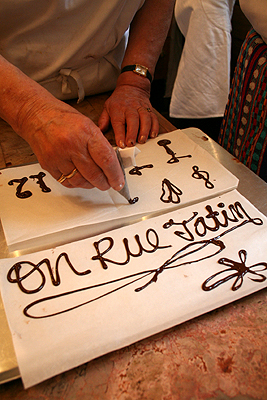 On Rue Tatin